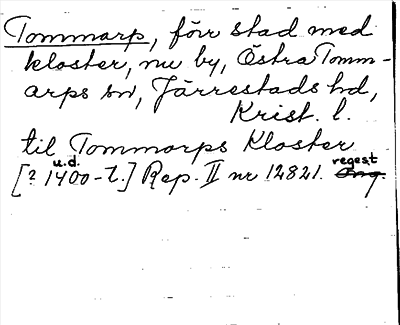 Tommarp, förr stad med
kloster, nu by, Östra Tomm-
arps sn, Järrestads hd,
Krist. l.
til Tommarps Kloster
u.d. regest
[? 1400-t.] Rep. II nr 12821. Orig.